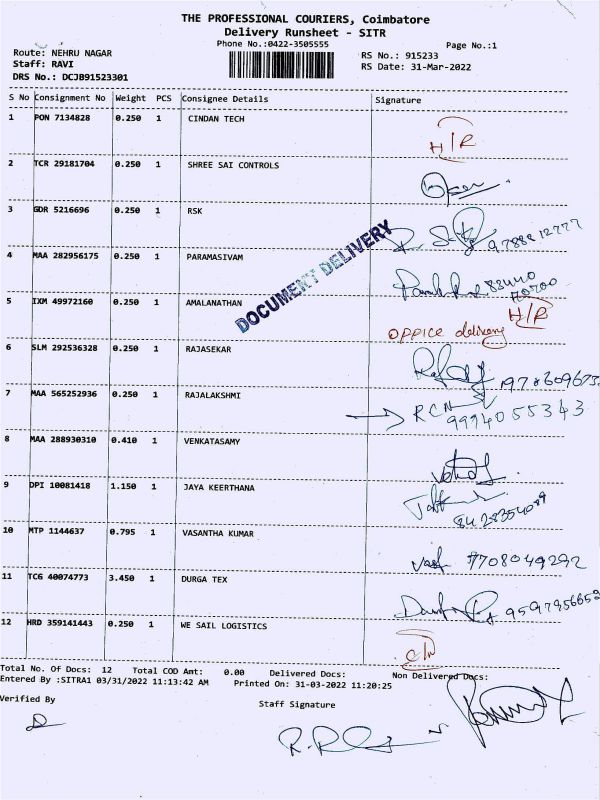 THE PROFESSIONAL COURIERS, Coimbatore
Delivery Runsheet - SITR
Phone No.:0422-3505555
Page No.:1
Route: NEHRU NAGAR
RS No.: 915233
Staff: RAVI
RS Date: 31-Mar-2022
DRS No.: DCJB91523301
S No Consignment No Weight PCS Consignee Details Signature
1 PON 7134828 0.250 1 CINDAN TECH
H/R
2 TCR 29181704 0.250 1 SHREE SAI CONTROLS
3 GDR 5216696 0.250 1 RSK
DOCUMENT DELIVERY
4 MAA 282956175 0.250 1 PARAMASIVAM
5 IXM 49972160 0.250 1 AMALANATHAN
H/R
OPPICE delivery
6 SLM 292536328 0.250 1 RAJASEKAR
7 MAA 565252936 0.250 1 RAJALAKSHMI
9994055343
8 MAA 288930310 0.410 1 VENKATASAMY
9 DPI 10081418 1.150 1 JAYA KEERTHANA
10 MTP 1144637 0.795 1 VASANTHA KUMAR
7708049292
11 TCG 40074773 3.450 1 DURGA TEX
9597956652
12 HRD 359141443 0.250 1 WE SAIL LOGISTICS
Total No. Of Docs: 12 Total COD Amt: 0.00 Delivered Docs: Non Delivered Docs:
Entered By :SITRA1 03/31/2022 11:13:42 AM Printed On: 31-03-2022 11:20:25
Verified By
Staff Signature